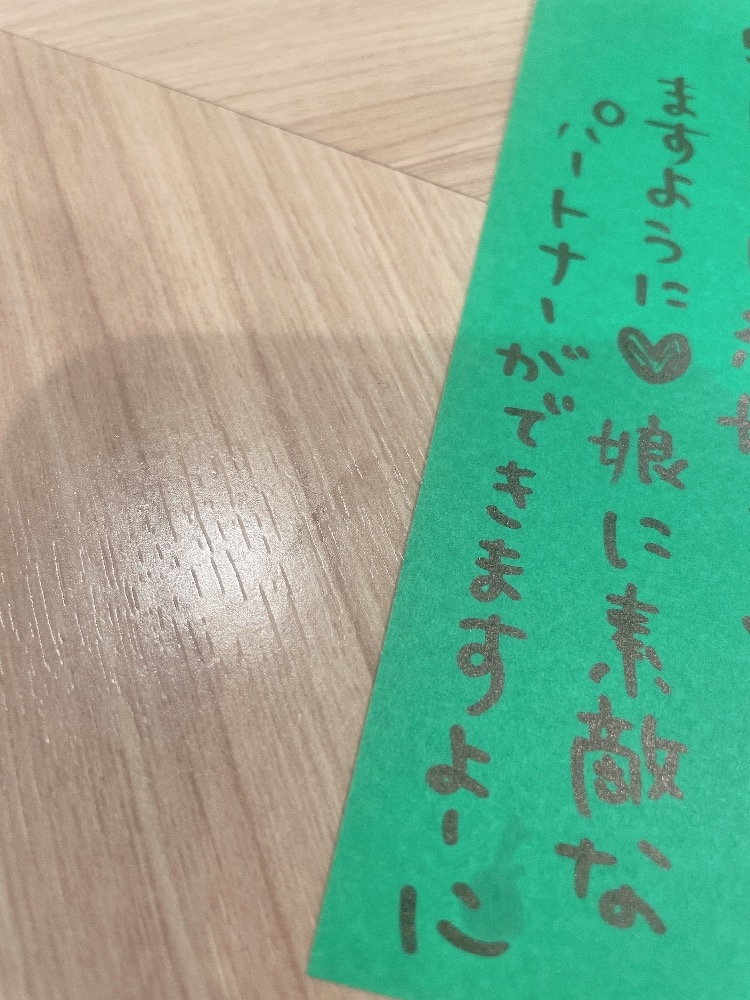 ますように♥娘に素敵な
パートナーができますよーに